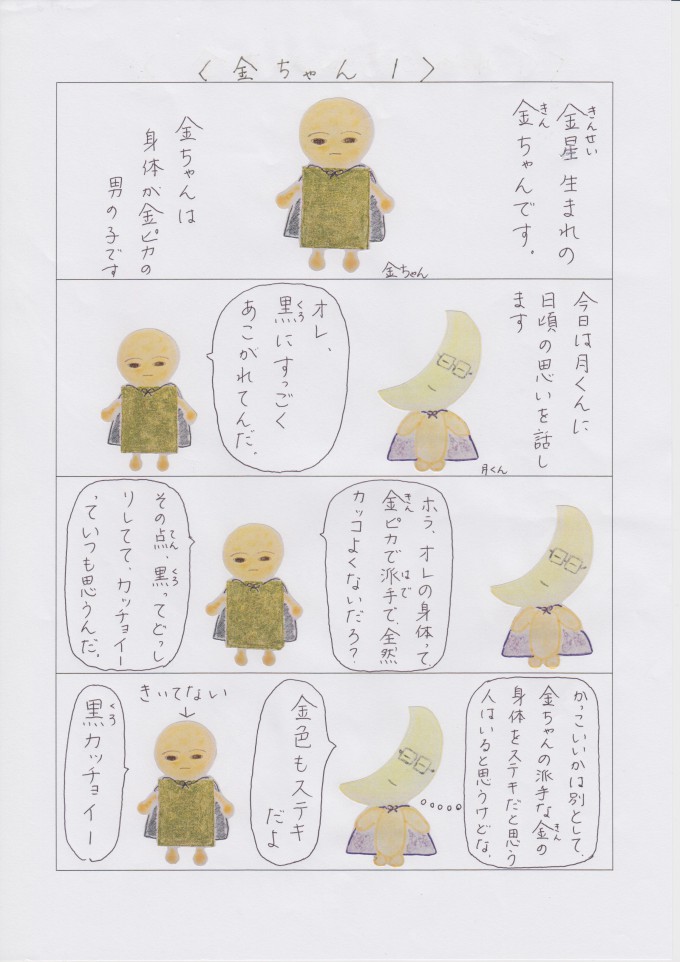 〈金ちゃん1〉
金星生まれの
きんせい
金ちゃんです。
きん
金ちゃんは
身体が金ピカの
男の子です
金ちゃん
今日は月くんに
日頃の思いを話し
ます
オレ、
黒にすっごく
くろ
あこがれてんだ。
月くん
ホラ、オレの身体って
金ピカで派手で、全然
きん はで
カッコよくないだろ?
その点、黒ってどっし
てん くろ
りしてて、カッチョイー
っていつも思うんだ。
かっこいいかは別として、
金ちゃんの派手な金の
きん
身体をステキだと思う
人はいると思うけどな。
金色もステキ
だよ
きいてない
黒カッチョイー
くろ